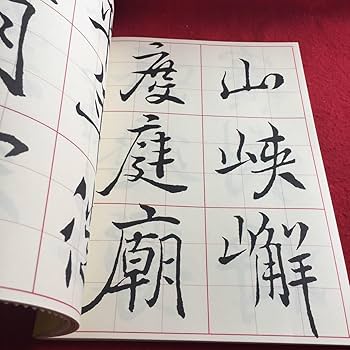 山峡嶰
度庭廟